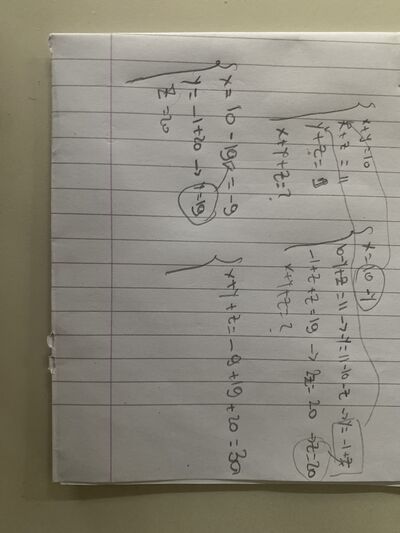 x+y=10
x+z = 11
y+z =
x+y+z=?
x=10-y
10-y+z=11 → -y=11-10-z → y=-1+z
-1+z+z=19 → 2z=20 → z=20
x+y+z=?
x= 10 - 19 = -9
y= -1+20 → y=19
z=20
x+y+z= -9+19+20=30